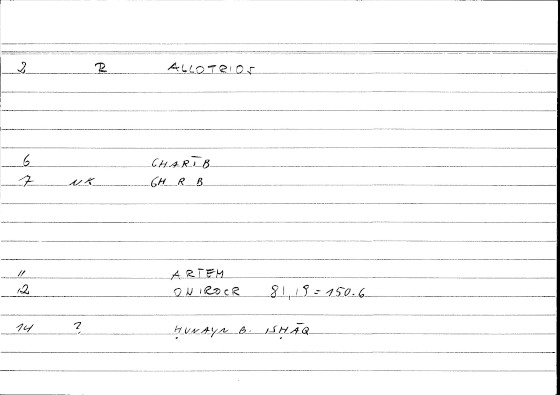 2 R ALLOTRIOS
6 GHARĪB
7 NK GH R B
11 ARTEM
12 ONIROCR 81,19 = 150.6
14 ? ḤUNAYN B. ISḤĀQ